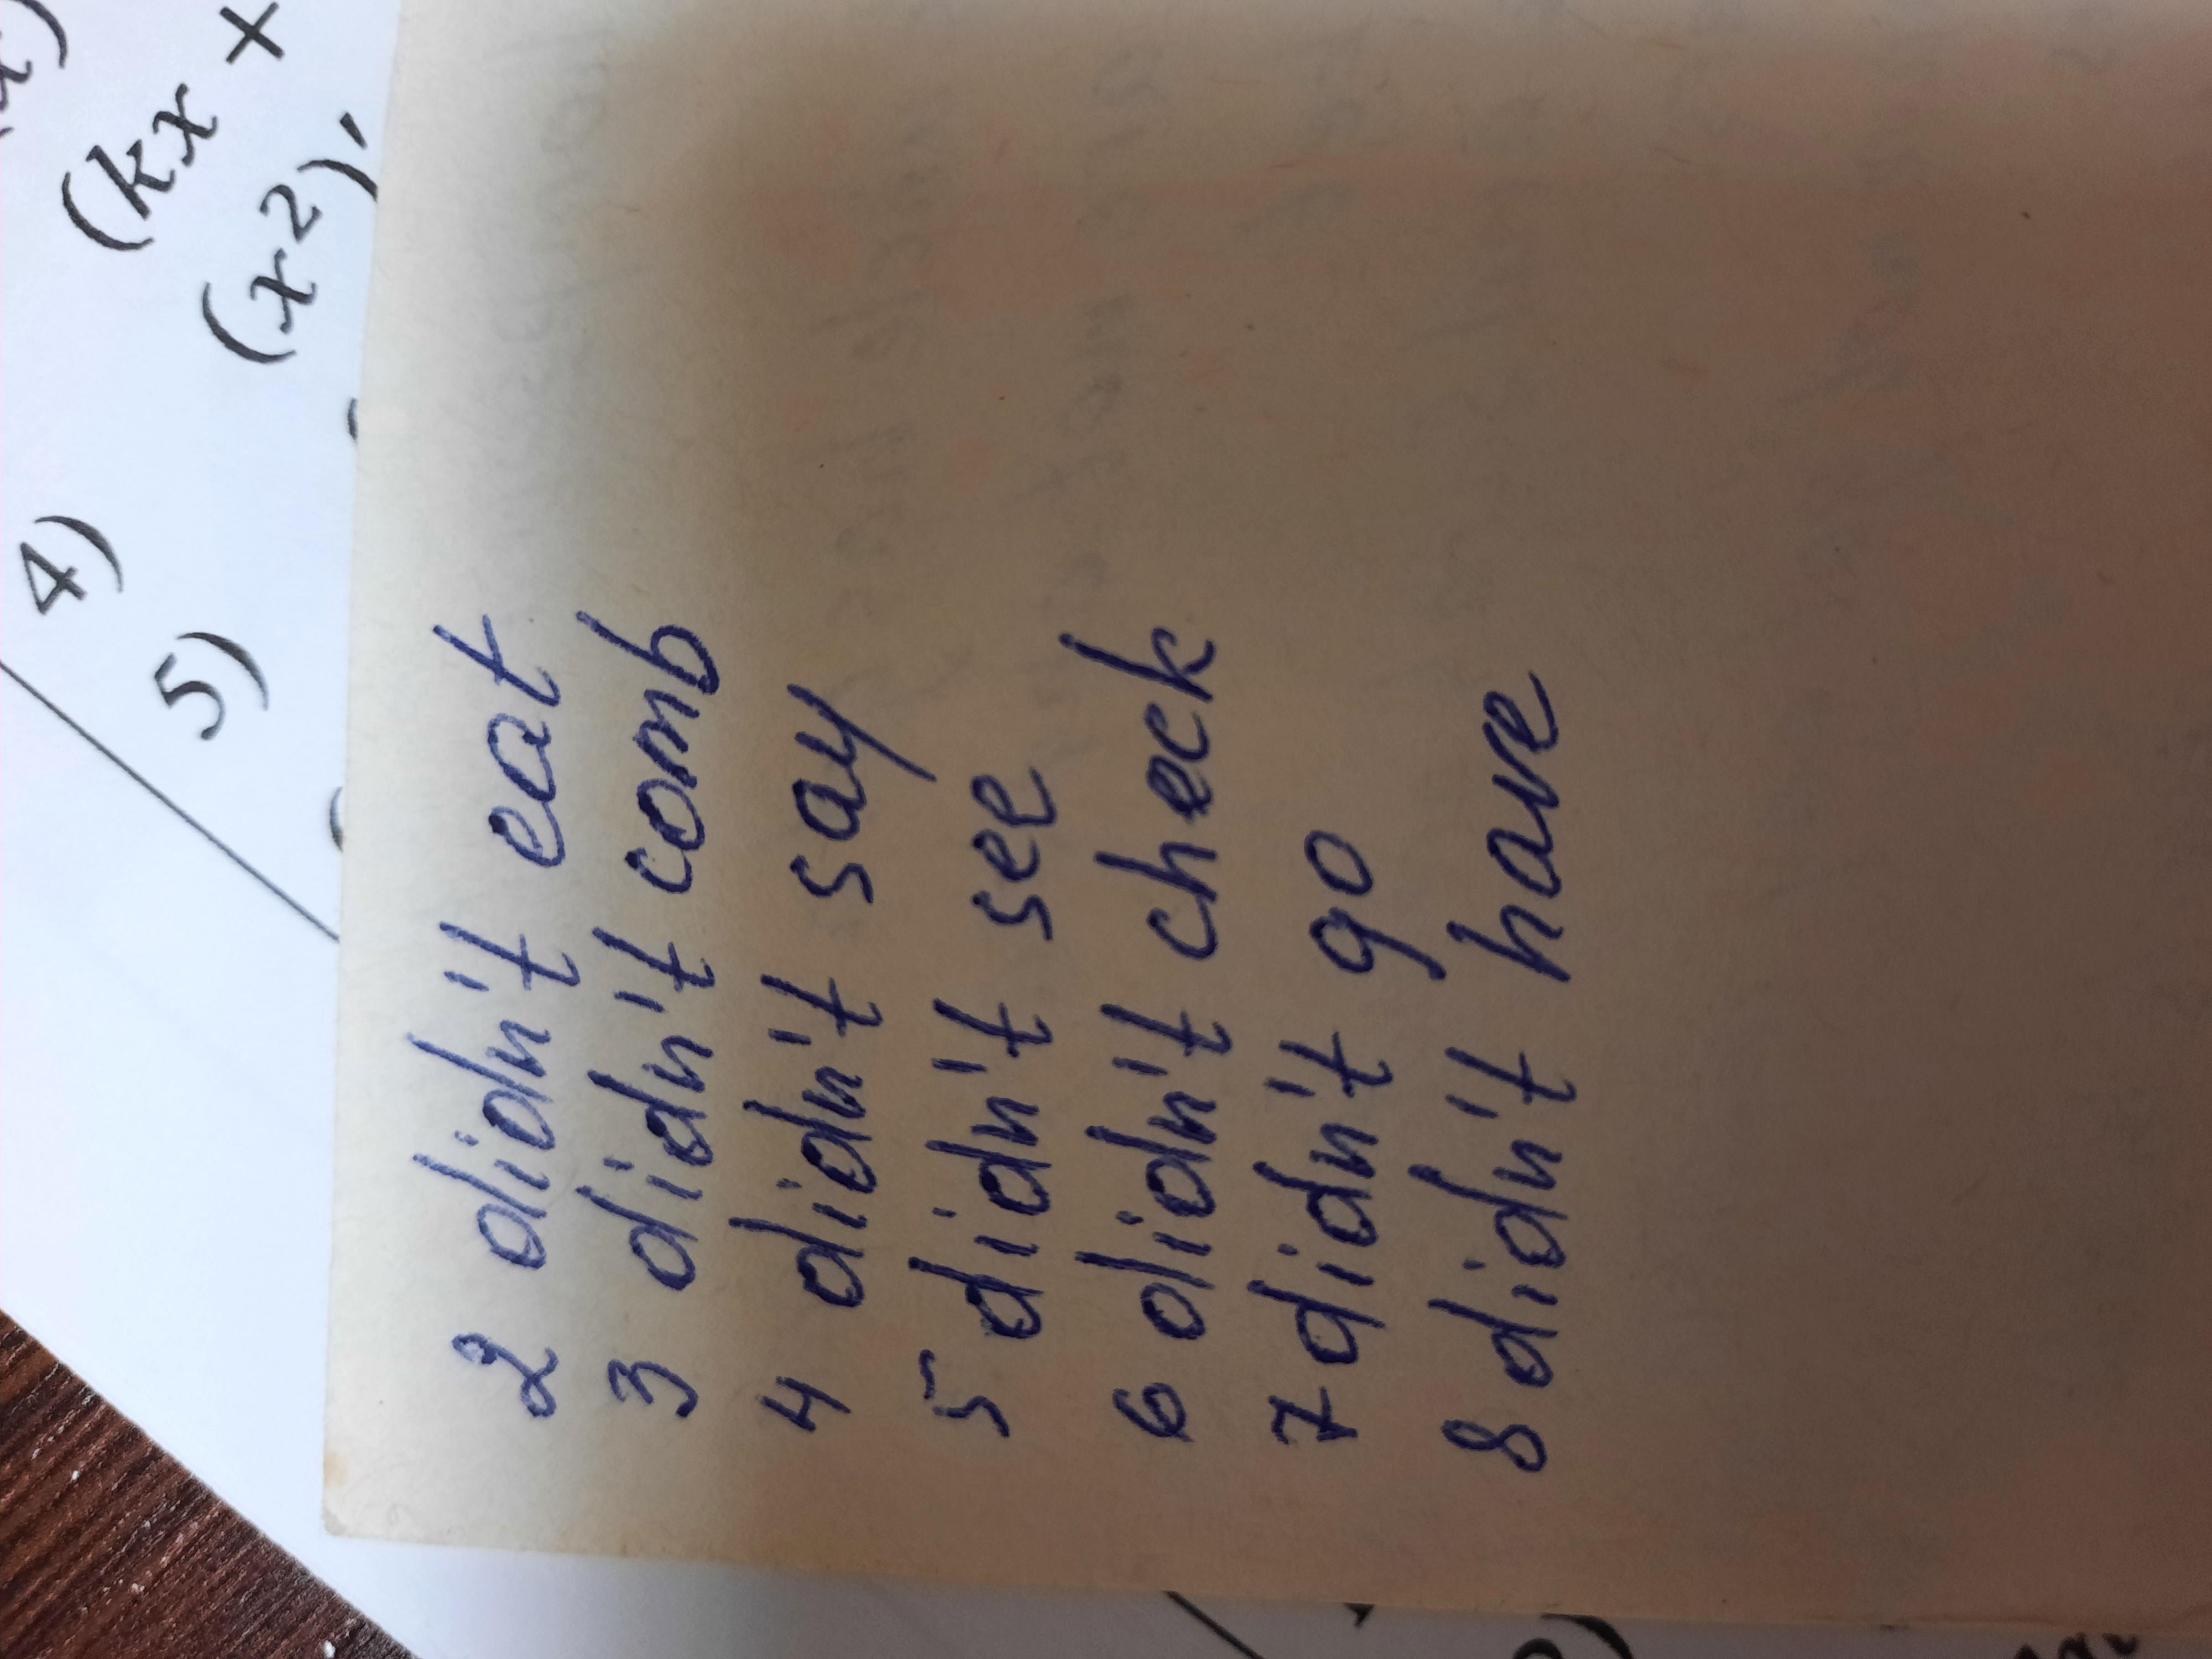 4) (kx +
5) (x²)'
2 didn't eat
3 didn't comb
4 didn't say
5 didn't see
6 didn't check
7 didn't go
8 didn't have